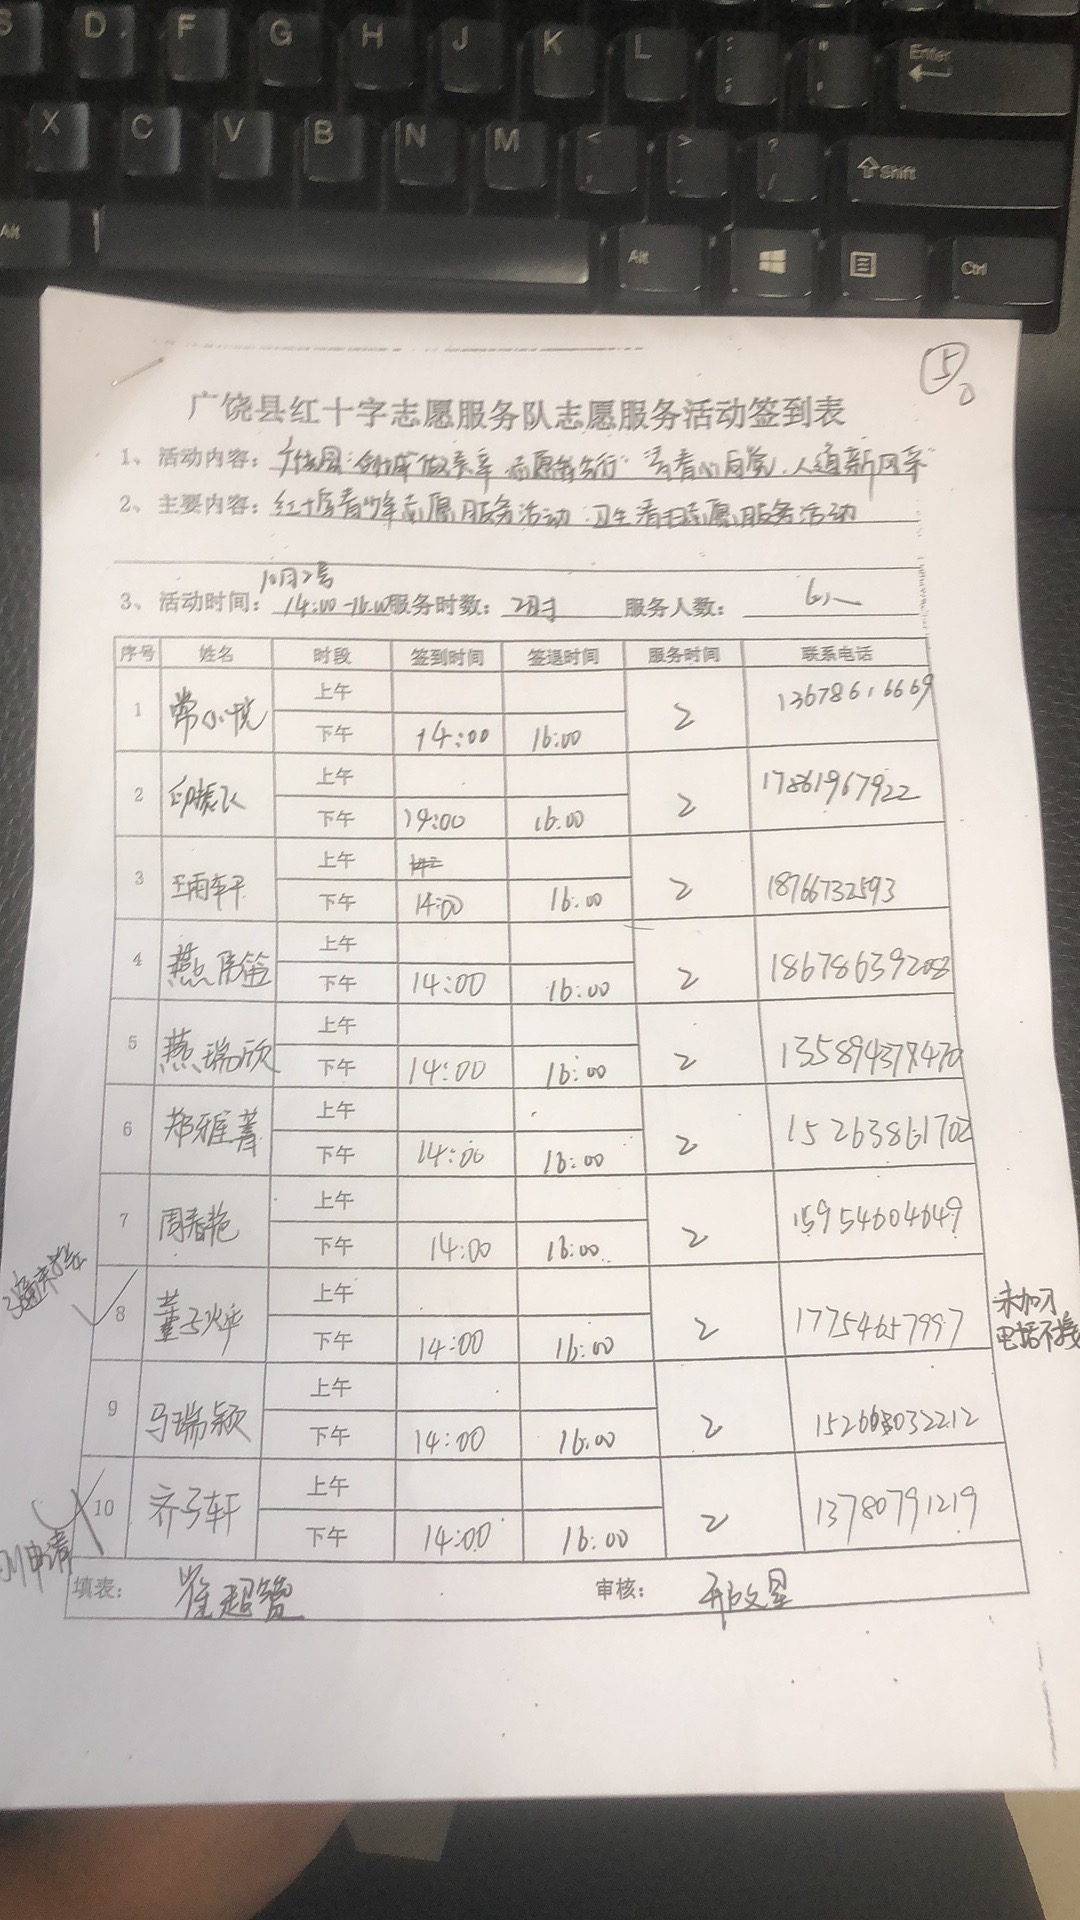 S D F G H J K L : ; " ' Enter
X C V B N M < , > . ? / Shift
Alt Alt Ctrl
5
广饶县红十字志愿服务队志愿服务活动签到表
1、活动内容： 志愿 行" 青春心向党、人道新风采"
2、主要内容：红十字青少年志愿服务活动、卫生清扫志愿服务活动
10月2号
3、活动时间：14:00-16:00 服务时数：2小时 服务人数：
序号 姓名 时段 签到时间 签退时间 服务时间 联系电话
1 常 悦 上午 2 13678616669
下午 14:00 16:00
2 上午 2 17861967922
下午 14:00 16:00
3 王雨轩 上午 2 18766732593
下午 14:00 16:00
4 燕 笛 上午 2
下午 14:00 16:00
5 燕瑞欣 上午 2
下午 14:00 16:00
6 郑雅菁 上午 2
下午 14:00 16:00
7 周春艳 上午 2 15954604649
下午 14:00 16:00
8 董子烨 上午 2 17754657997 未加才
下午 14:00 16:00 电话不接
9 马瑞颖 上午 2
下午 14:00 16:00
10 齐子轩 上午 2 13780791219
下午 14:00 16:00
申请
填表： 崔超 审核： 邢文星